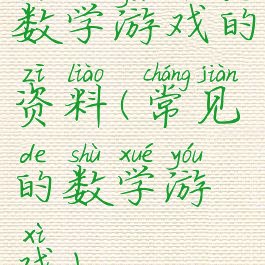 数学游戏的
zī liào cháng jiàn
资料(常见
de shù xué yóu
的数学游
xì
戏)